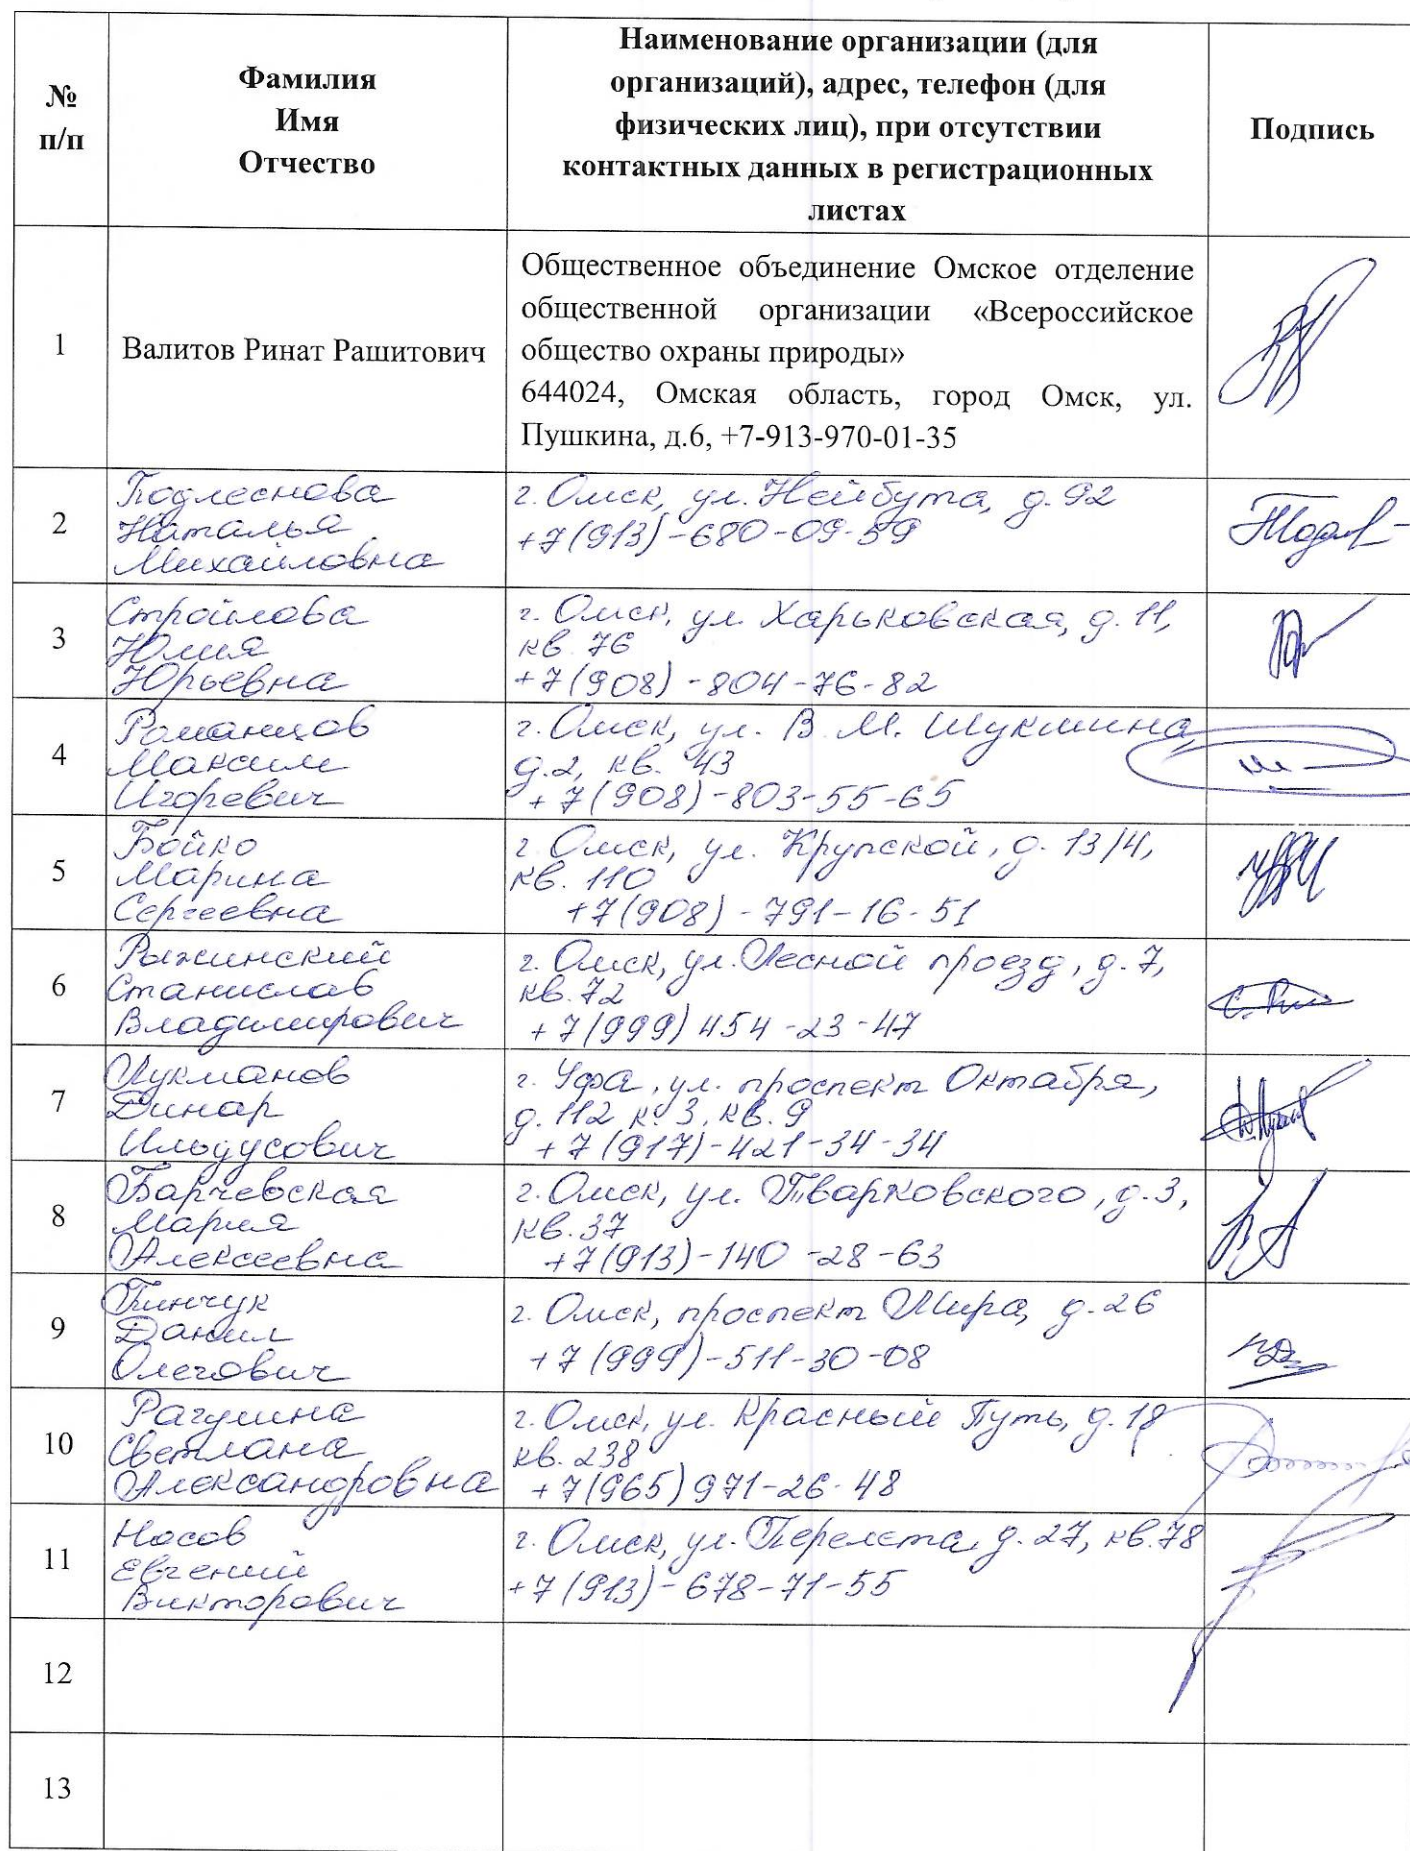 №
п/п
Фамилия
Имя
Отчество
Наименование организации (для
организаций), адрес, телефон (для
физических лиц), при отсутствии
контактных данных в регистрационных
листах
Подпись
1
Валитов Ринат Рашитович
Общественное объединение Омское отделение
общественной организации «Всероссийское
общество охраны природы»
644024, Омская область, город Омск, ул.
Пушкина, д.6, +7-913-970-01-35
2
Подлеснова
Наталья
Михайловна
г. Омск, ул. Нейбута, д. 92
+7(913)-680-09-59
3
Строилова
Юлия
Юрьевна
г. Омск, ул. Харьковская, д. 11,
кв. 76
+7(908)-804-76-82
4
Романцов
Максим
Игоревич
г. Омск, ул. В. М. Шукшина,
д.2, кв. 43
+7(908)-803-55-65
5
Бойко
Марина
Сергеевна
г. Омск, ул. Крупской, д. 13/4,
кв. 110
+7(908)-791-16-51
6
Рыжинский
Станислав
Владимирович
г. Омск, ул. Лесной проезд, д. 7,
кв. 72
+7(999) 454-23-47
7
Лукманов
Динар
Ильдусович
г. Уфа, ул. проспект Октября,
д. 112 к. 3, кв. 9
+7(917)-421-34-34
8
Барчевская
Мария
Алексеевна
г. Омск, ул. Тварковского, д. 3,
кв. 37
+7(913)-140-28-63
9
Пинчук
Данил
Олегович
г. Омск, проспект Мира, д. 26
+7(999)-511-30-08
10
Рагулина
Светлана
Александровна
г. Омск, ул. Красный Путь, д. 18
кв. 238
+7(965) 971-26-48
11
Носов
Евгений
Викторович
г. Омск, ул. Перелета, д. 27, кв. 78
+7(913)-678-71-55
12
13